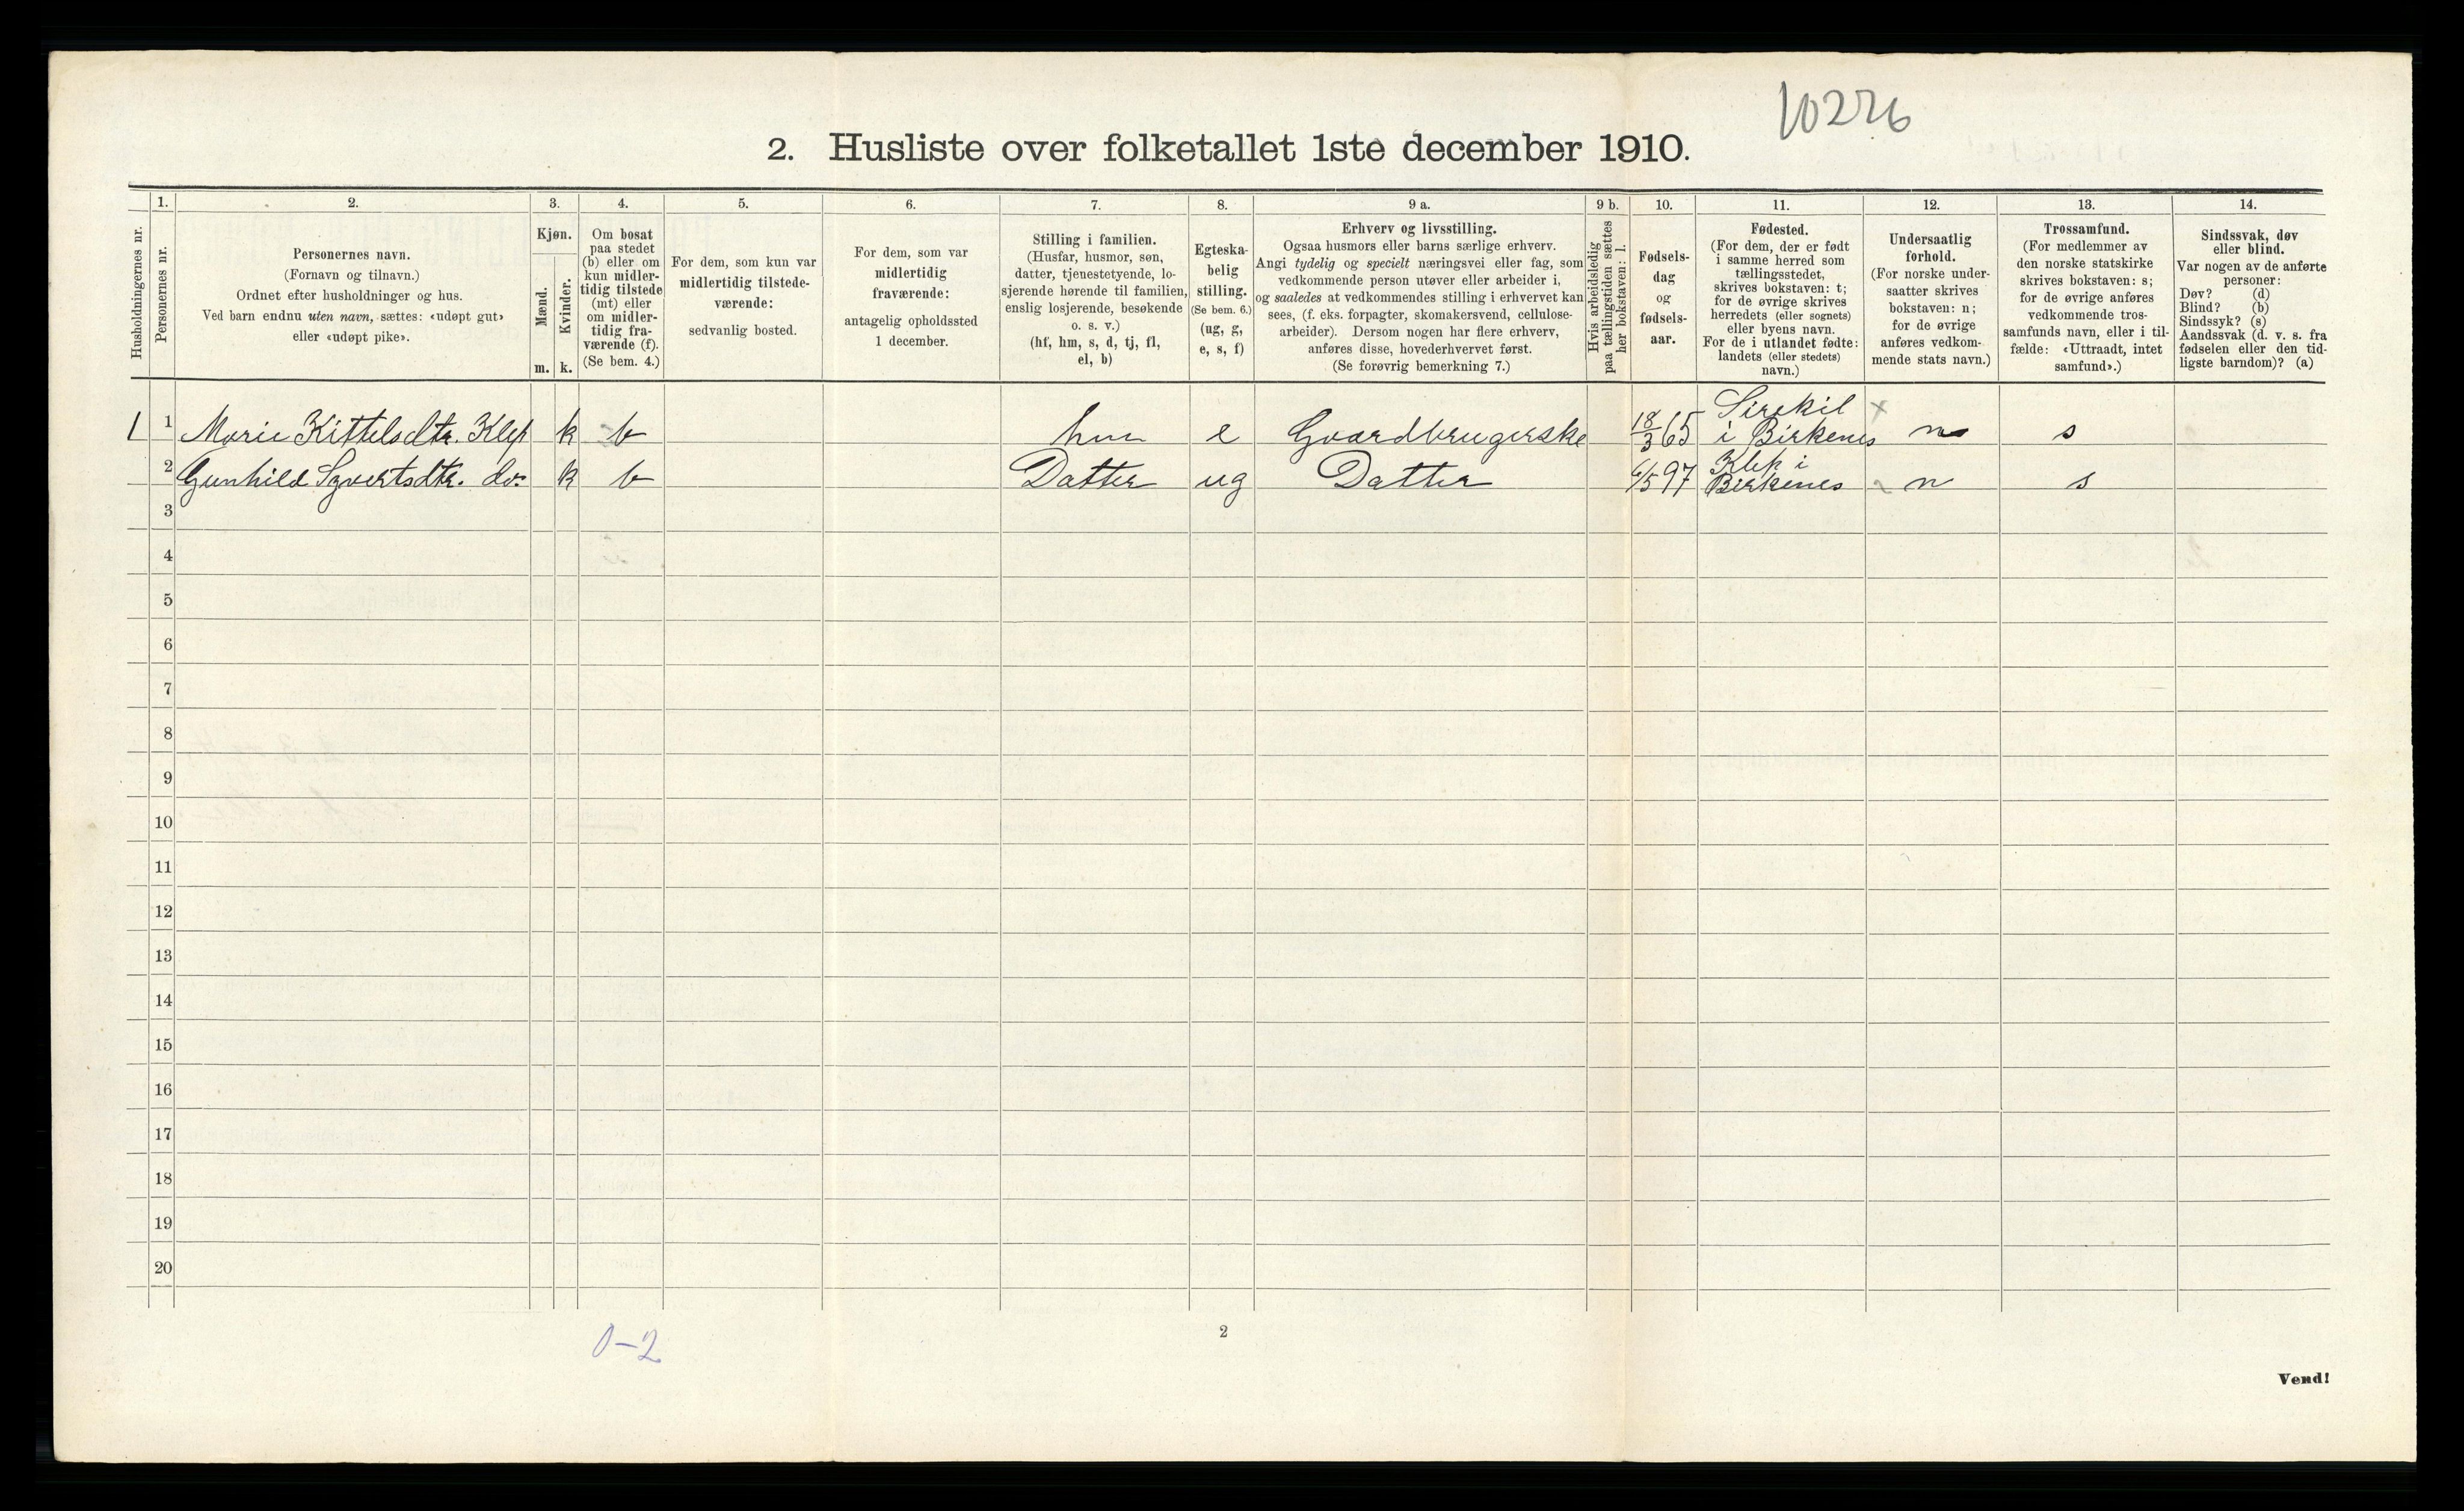 10226
2. Husliste over folketallet 1ste december 1910.
Husholdningernes nr.
1.
Personernes nr.
2.
Personernes navn.
(Fornavn og tilnavn.)
Ordnet efter husholdninger og hus.
Ved barn endnu uten navn, sættes: «udøpt gut»
eller «udøpt pike».
3.
Kjøn.
Mænd.
Kvinder.
m. k.
4.
Om bosat
paa stedet
(b) eller om
kun midler-
tidig tilstede
(mt) eller
om midler-
tidig fra-
værende (f).
(Se bem. 4.)
5.
For dem, som kun var
midlertidig tilstede-
værende:
sedvanlig bosted.
6.
For dem, som var
midlertidig
fraværende:
antagelig opholdssted
1 december.
7.
Stilling i familien.
(Husfar, husmor, søn,
datter, tjenestetyende, lo-
sjerende hørende til familien,
enslig losjerende, besøkende
o. s. v.)
(hf, hm, s, d, tj, fl,
el, b)
8.
Egteska-
belig
stilling.
(Se bem. 6.)
(ug, g,
e, s, f)
9 a.
Erhverv og livsstilling.
Ogsaa husmors eller barns særlige erhverv.
Angi tydelig og specielt næringsvei eller fag, som
vedkommende person utøver eller arbeider i,
og saaledes at vedkommendes stilling i erhvervet kan
sees, (f. eks. forpagter, skomakersvend, cellulose-
arbeider). Dersom nogen har flere erhverv,
anføres disse, hovederhvervet først.
(Se forøvrig bemerkning 7.)
9 b.
Hvis arbeidsledig
paa tællingstiden sættes
her bokstaven: l.
10.
Fødsels-
dag
og
fødsels-
aar.
11.
Fødested.
(For dem, der er født
i samme herred som
tællingsstedet,
skrives bokstaven: t;
for de øvrige skrives
herredets (eller sognets)
eller byens navn.
For de i utlandet fødte:
landets (eller stedets)
navn.)
12.
Undersaatlig
forhold.
(For norske under-
saatter skrives
bokstaven: n;
for de øvrige
anføres vedkom-
mende stats navn.)
13.
Trossamfund.
(For medlemmer av
den norske statskirke
skrives bokstaven: s;
for de øvrige anføres
vedkommende tros-
samfunds navn, eller i til-
fælde: «Uttraadt, intet
samfund».)
14.
Sindssvak, døv
eller blind.
Var nogen av de anførte
personer:
Døv? (d)
Blind? (b)
Sindssyk? (s)
Aandssvak (d. v. s. fra
fødselen eller den tid-
ligste barndom)? (a)
1 1 Marie Kittelsdtr. Klep k b hm e Gaardbrugerske 18/3 65 i Birkenes n s
2 Gunhild Syvertsdtr. do. k b Datter ug Datter 6/5 97 Klep i Birkenes n s
3
4
5
6
7
8
9
10
11
12
13
14
15
16
17
18
19
20
0-2
2
Vend!